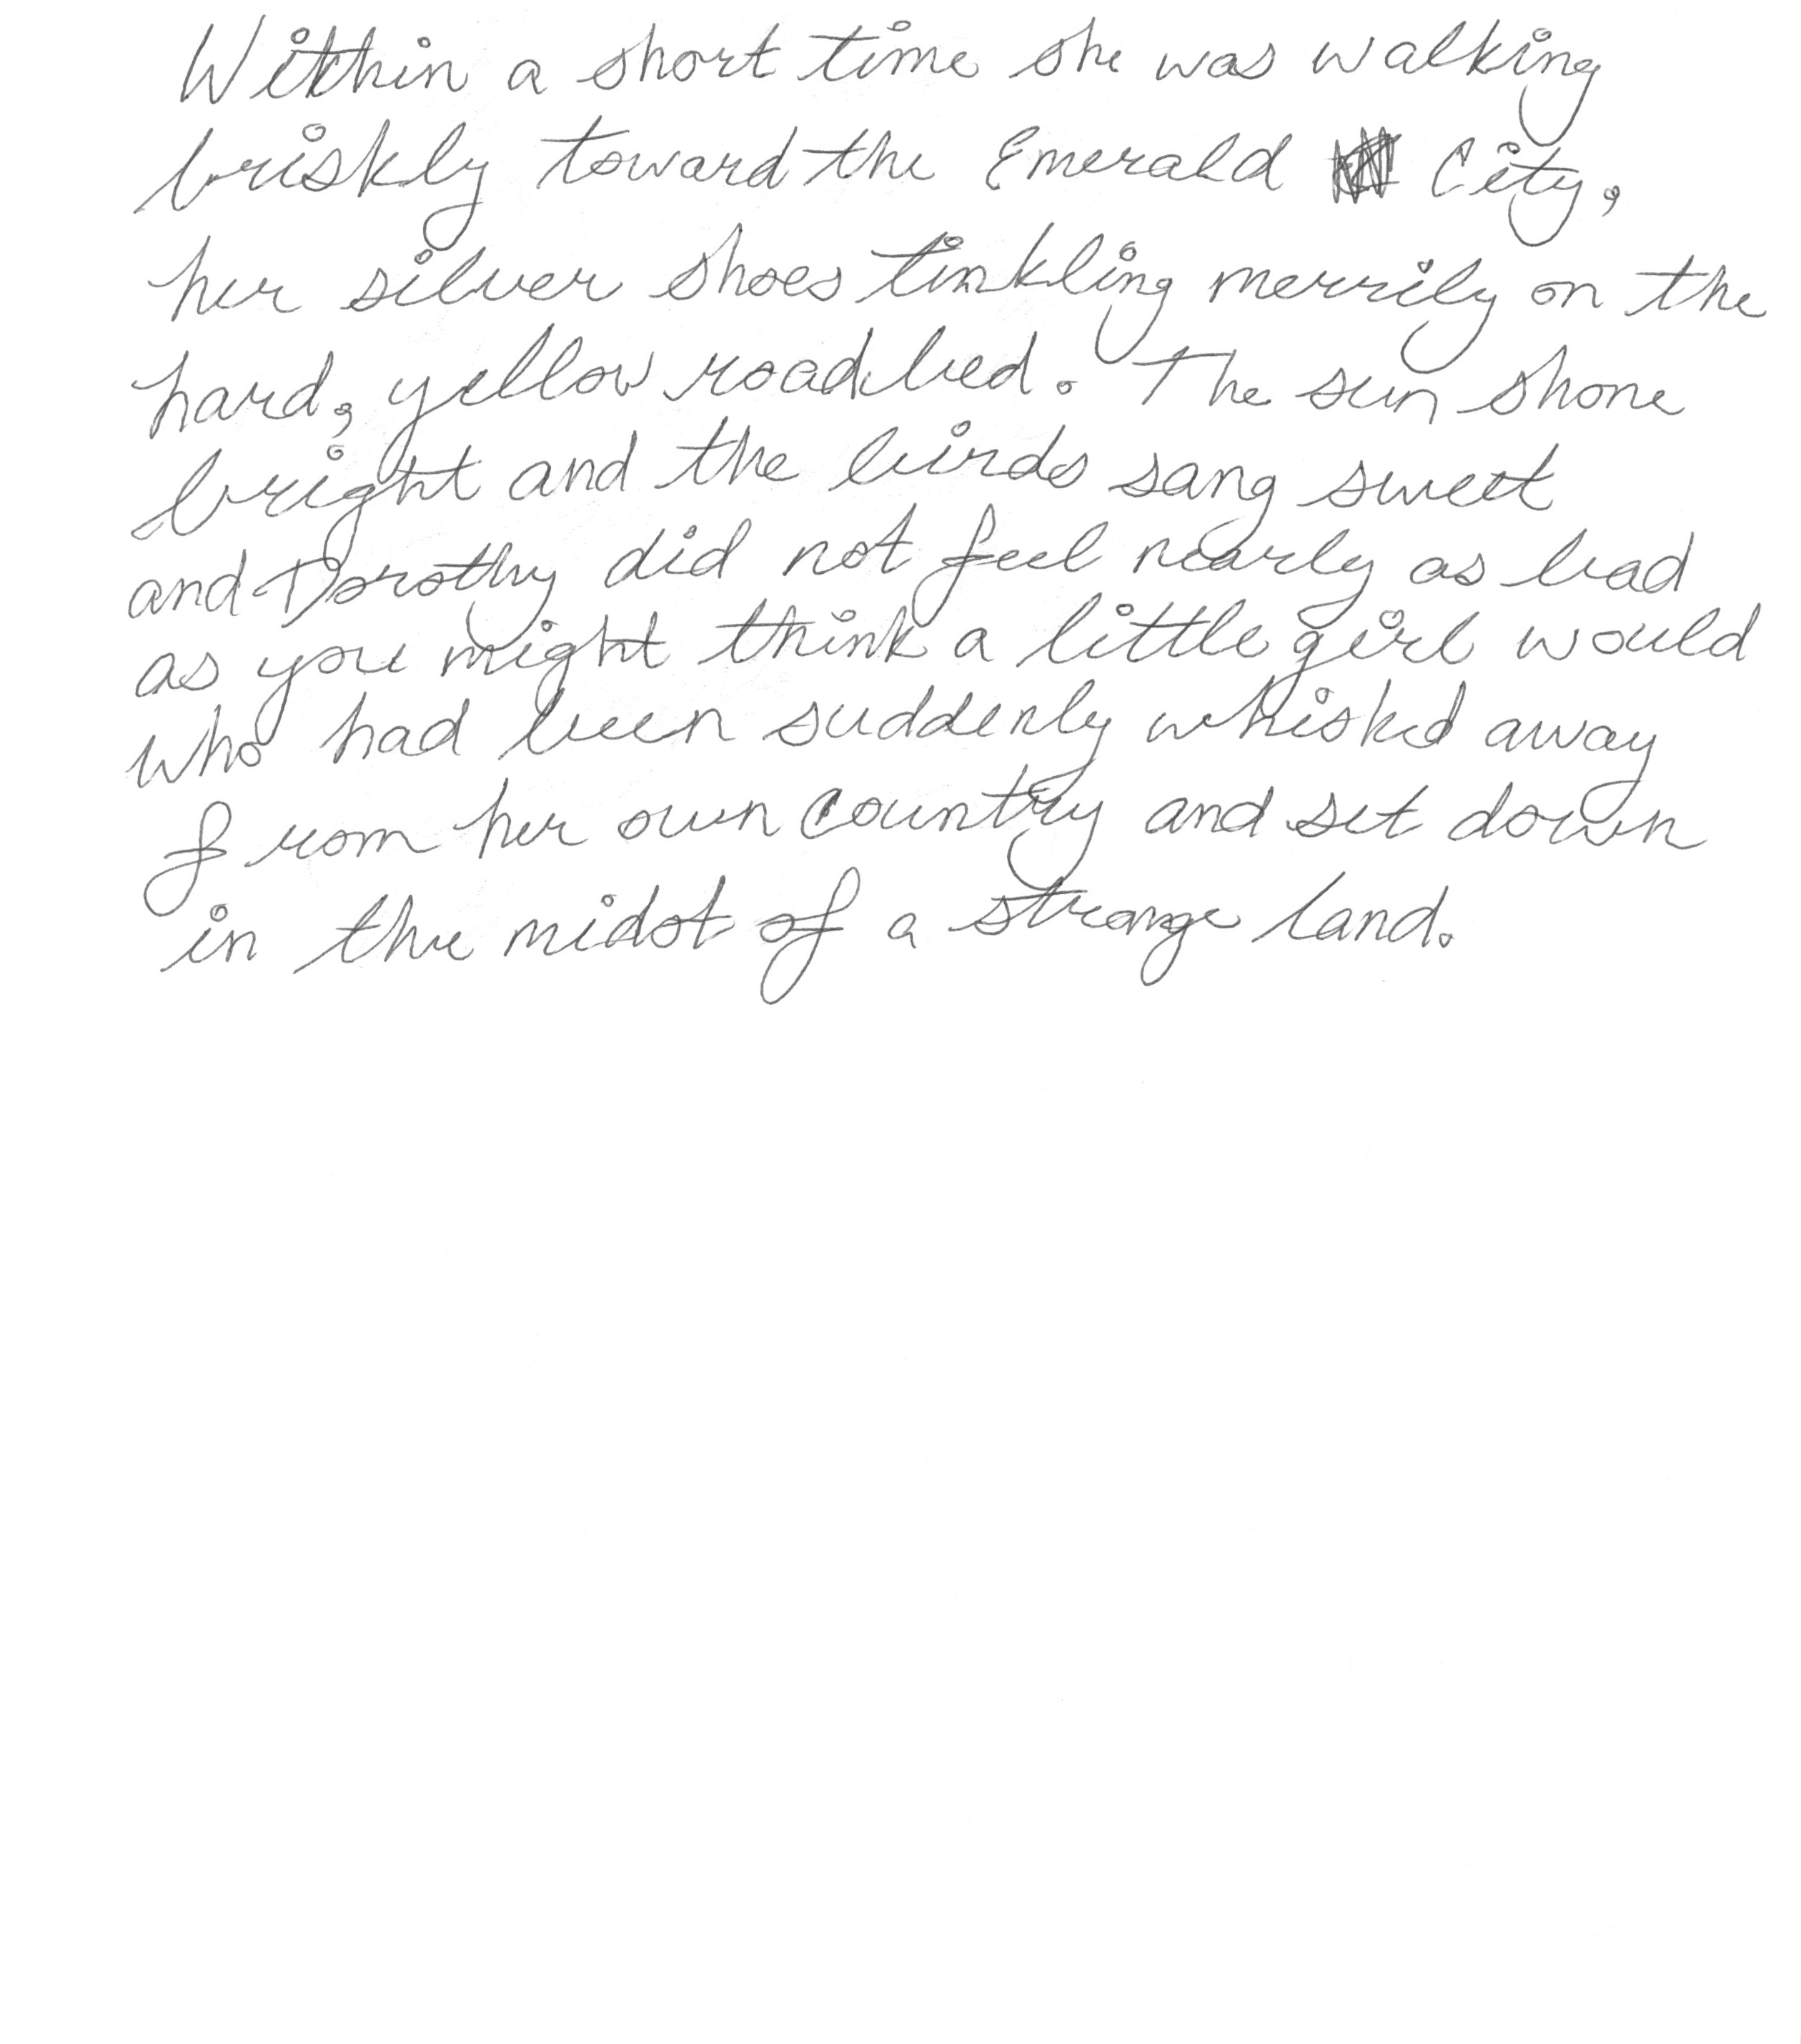 Within a short time she was walking
briskly toward the Emerald City,
her silver shoes tinkling merrily on the
hard, yellow roadbed. The sun shone
bright and the birds sang sweet
and Dorothy did not feel nearly as bad
as you might think a little girl would
who had been suddenly whisked away
from her own country and set down
in the midst of a strange land.